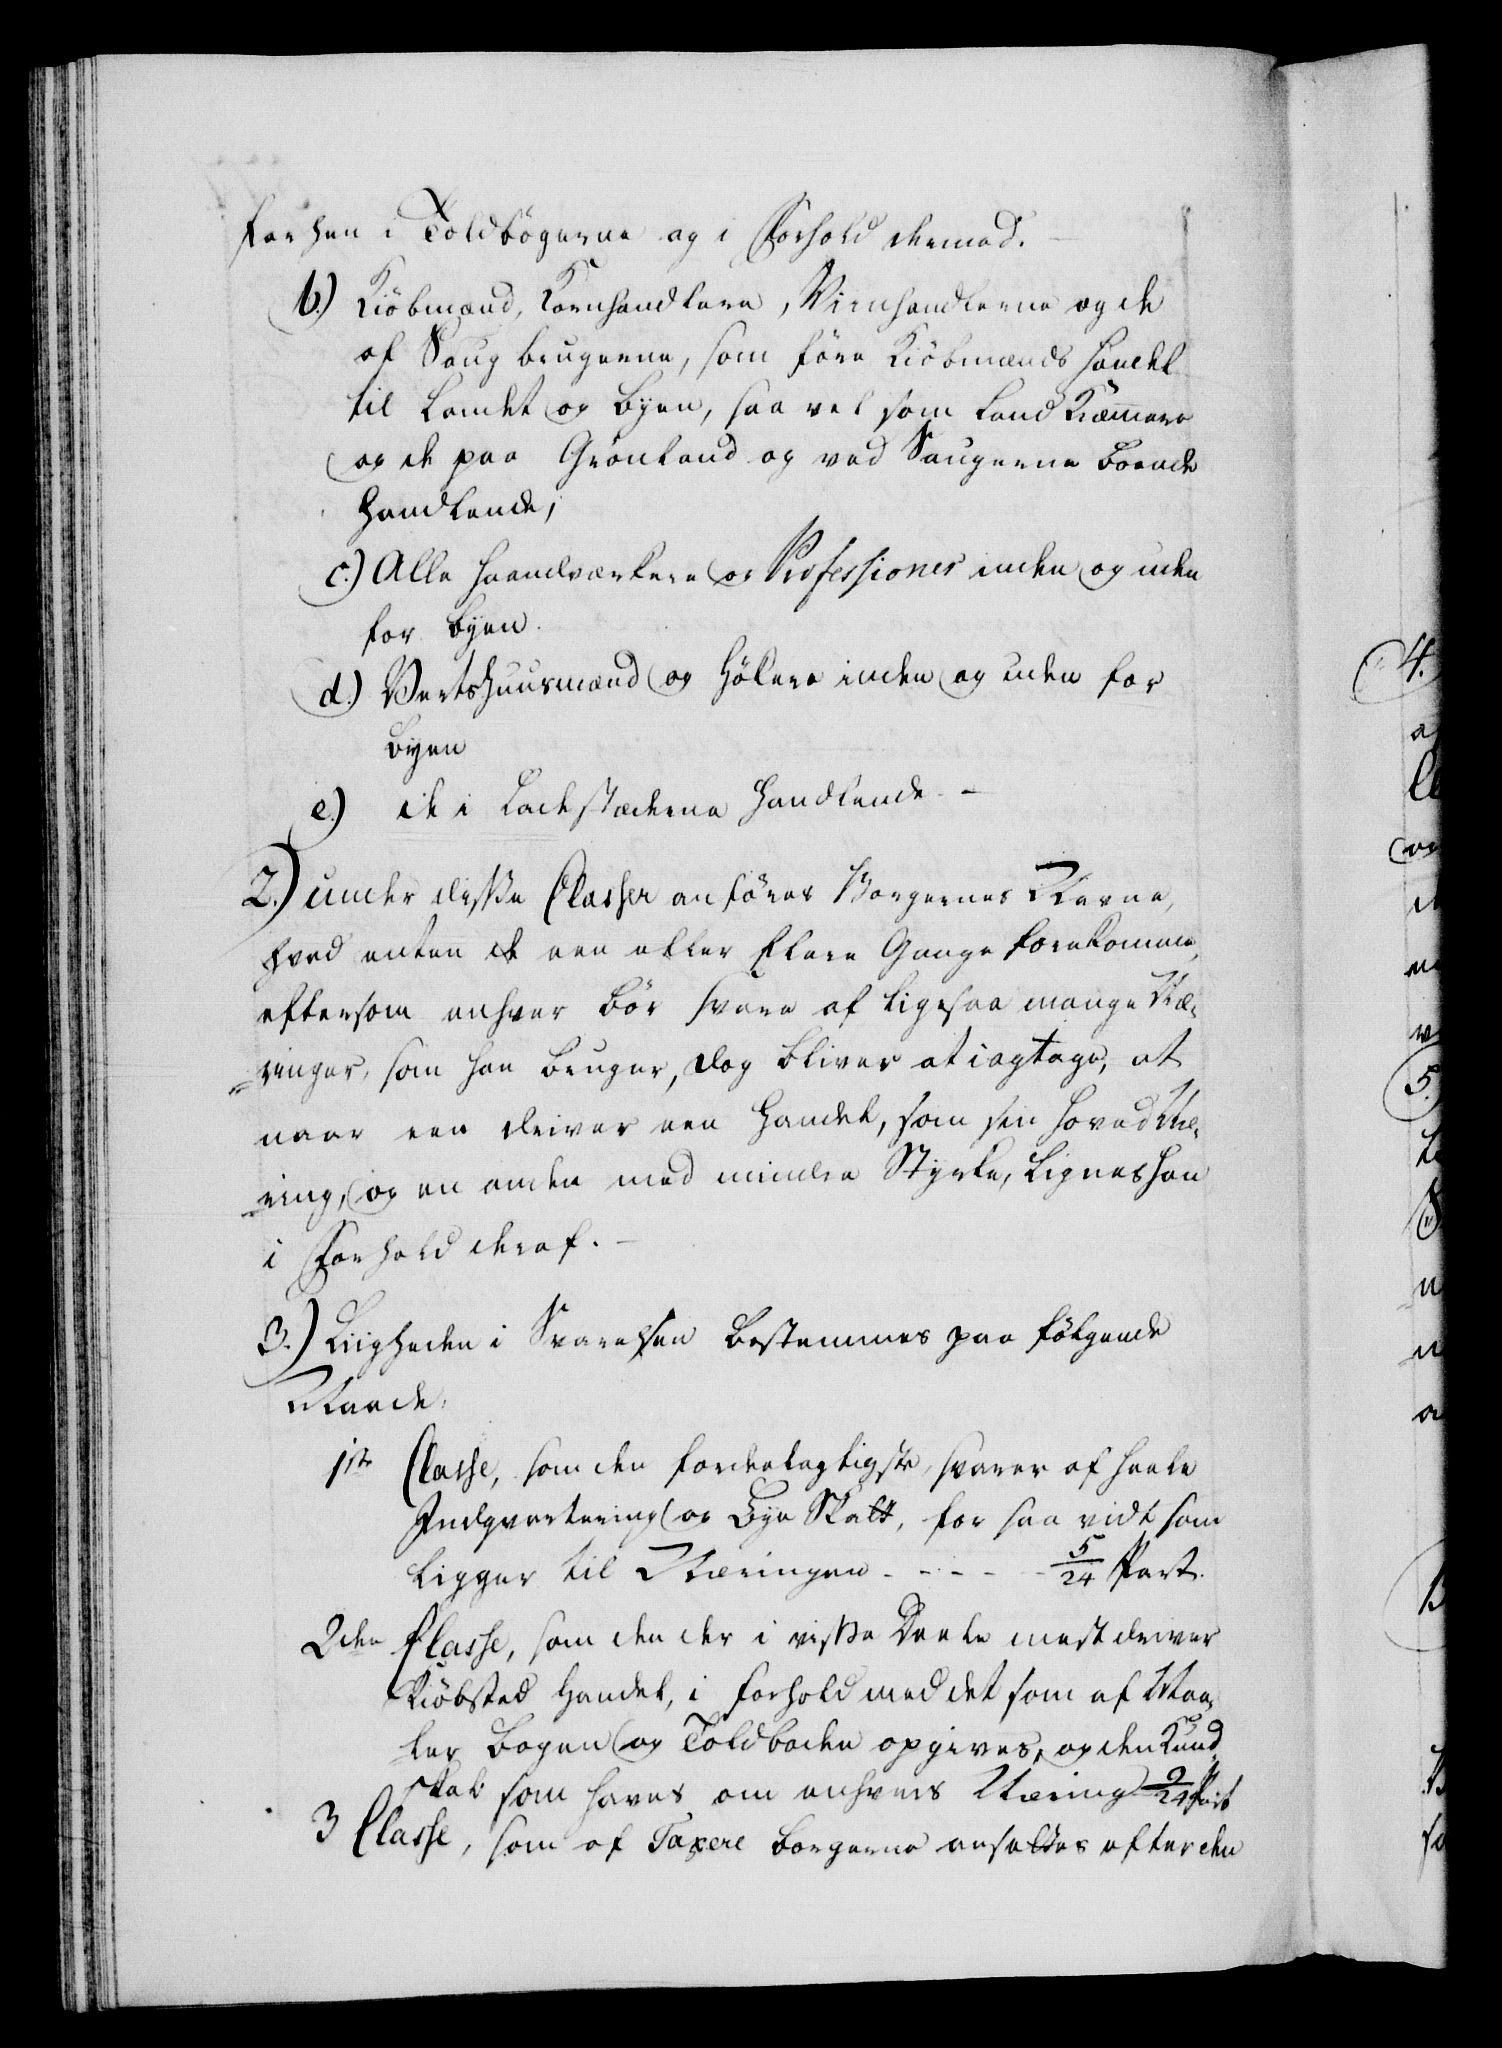 forhen i Toldbögerne og i Forhold dermed.
b.) Kiöbmænd, Kornhandlere, Viinhandlerne og de
af Saug brugerne, som före Kiöbmænds Handel
til Landet og Byen, saa vel som Land Kræmere
og de paa Grönland og ved Saugerne boende
Handlende;
c.) Alle Haandværkere og Professioner inden og uden
for Byen.
d.) Vertshuusmænd og Hökere inden og uden for
Byen
e.) de i Ladestæderne Handlende. –
2.) under disse Classer anföres Borgernes Navne,
hvad enten de een eller flere Gange forekomme,
eftersom enhver bör svare af ligesaa mange Næ-
ringer, som han bruger, dog bliver at iagtage, at
naar een driver een Handel, som sin Hoved Næ-
ring, og en anden med mindre Styrke, lignes han
i Forhold deraf. –
3.) Liigheden i Svarelsen bestemmes paa fölgende
Maade:
1ste Classe, som den fordelagtigste, svarer af heele
Indqvartering og Bye Skatt, for saa vidt som
ligger til Næringen - - - - - 5/24 Part.
2den Classe, som den der i visse Deele mest driver
Kiöbsted Handel, i forhold med det som af Maa-
ler Bogen og Toldboden opgives, og den Kund-
skab som haves om enhvers Næring 9/24 Part
3 Classe, som af Taxere borgerne ansettes efter den
4.
5.